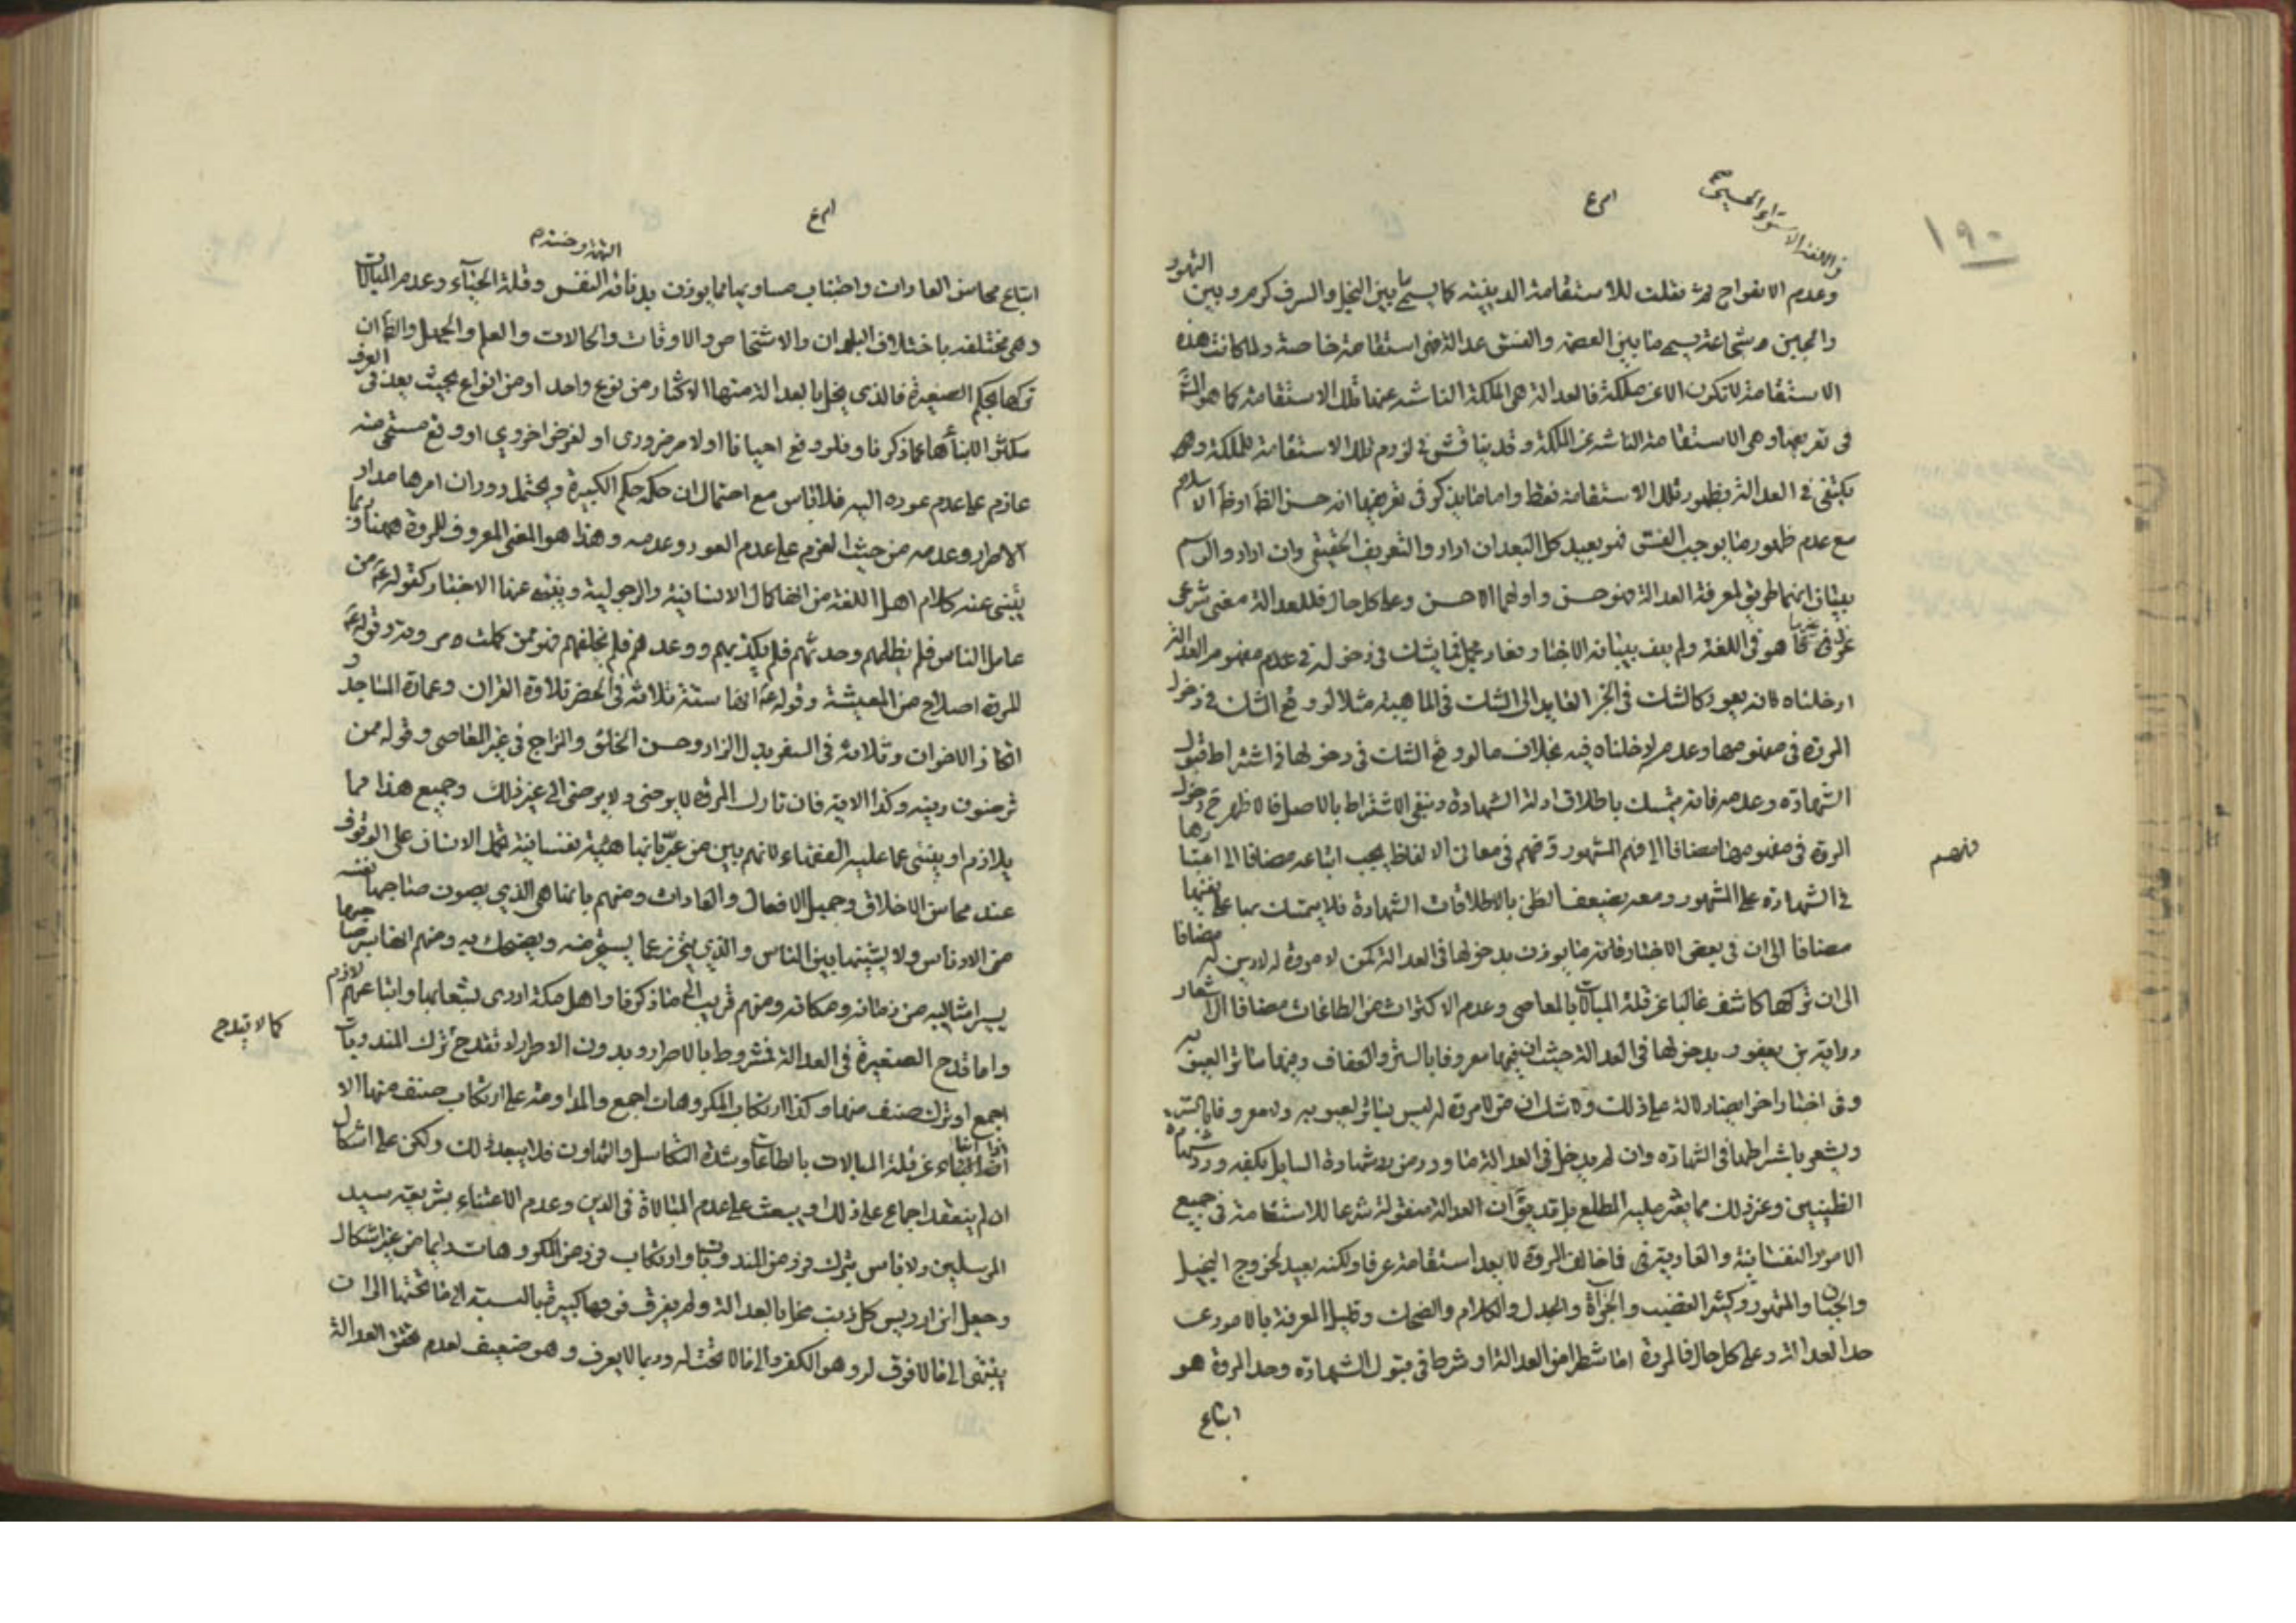 ١٩٠
في اللغة الاستواء الحسي
وعدم الاعوجاج ثم نقلت للاستقامة الدينية كما يسمى ما بين البخل والسرف كرم وبين التهور
والجبن شجاعة يسمى ما بين العصمة والفسق عدالة فهي استقامة خاصة ولما كانت هذه
الاستقامة لا تكون الا عن ملكة فالعدالة هي الملكة الناشئة عنها تلك الاستقامة كما هو
في تعريفها وهي الاستقامة الناشئة عن الملكة وقد يناقش في لزوم تلك الاستقامة للملكة وهل
يكتفى في العدالة بظهور تلك الاستقامة فقط واما ما يذكر في تعريفها انه حسن الظاهر او ظاهر الاسلام
مع عدم ظهور ما يوجب الفسق فهو بعيد كل البعد ان ارادوا التعريف الحقيقي وان ارادوا الرسم
ببيان انهما طريق لمعرفة العدالة فهو حسن واولهما الاحسن وعلى كل حال فللعدالة معنى شرعي
هو في اللغة ولم يف ببيانه الاخبار فما يشك في دخوله في مفهوم العدالة
ادخلناه فانه يعود كالشك في الجزء العايد الى الشك في الماهية مثلا لو وقع الشك في دخول
المروة في مفهومها وعدمه لادخلناه فيه بخلاف ما لو وقع الشك في دخولها في اشتراط قبول
الشهادة وعدمه فانه يتمسك باطلاق ادلة الشهادة وينفى الاشتراط بالاصل فالاظهر دخول
المروة في مفهومها مضافا الى فهم المشهور وفهمهم في معاني الالفاظ يجب اتباعه مضافا الى اعتبارها
فهمهم
في الشهادة على المشهور ومعه يضعف الظن بالاطلاقات الشهادة فلا يتمسك بها على نفيها
مضافا الى ان في بعض الاخبار ما يوذن بدخولها في العدالة كمن لا مروة له لا دين له مضافا
الى ان تركها كاشف غالبا عن قلة المبالات بالمعاصي وعدم الاكتراث من الطاعات مضافا الى اشعار
رواية بن يعفور بدخولها في العدالة حيث ان فيها معروفا بالستر والعفاف وفيها ساترا لعيوبه
وفي اخبار اخر ايضا دلالة على ذلك ولا شك ان من لا مروة له ليس بساتر لعيوبه ولا معروفا بالستر
ويشعر باشتراطها في الشهادة وان لم يدخل في العدالة ما ورد من رد شهادة السايل بكفه ورد شهادة
الظنين وغير ذلك مما يعثر عليه المطلع بل قد يق ان العدالة منقولة شرعا للاستقامة في جميع
الامور النفسانية والعادية فمخالف المروة لا يعد استقامة عرفا ولكنه بعيد لخروج البخيل
والجبان والمتهور وكثير الغضب والجرأة والجدل والكلام والضحك وقليل المعرفة بالامور عن
حد العدالة وعلى كل حال فالمروة اما شطر من العدالة او شرط في قبول الشهادة وحد المروة هو
اتباع
اتباع محاسن العادات واجتناب مساويها مما يوذن بدنائة النفس وقلة الحياء وعدم المبالات
وهي مختلفة باختلاف البلدان والاشخاص والاوقات والحالات والعلم والجهل والظاهر ان
تركها بحكم الصغيرة فالذي يخل بالعدالة منها الاكثار من نوع واحد او من انواع بحيث يعد في العرف
ما ذكرنا فلو وقع احيانا او لامر ضروري او لغرض اخروي او وقع منه
عازم على عدم عوده اليه فلا باس مع احتمال ان حكمه حكم الكبيرة ويحتمل دوران امرها مدار
الاصرار وعدمه من حيث العزم على عدم العود وعدمه وهذا هو المعنى المعروف للمروة ههنا وربما
ينبئ عنه كلام اهل اللغة من انها كمال الانسانية والرجولية وينبئ عنها الاخبار كقوله ع من
عامل الناس فلم يظلمهم وحدثهم فلم يكذبهم ووعدهم فلم يخلفهم فهو ممن كملت مروته وقوله ع
المروة اصلاح المعيشة وقوله ع انها ستة ثلاثة في الحضر تلاوة القران وعمارة المساجد و
اتخاذ الاخوان وثلاثة في السفر بذل الزاد وحسن الخلق والمزاح في غير المعاصي وقوله ممن
ترضون دينه وكذا الاية فان تارك المروة لا يرضى ولا يرضى الى غير ذلك وجميع هذا مما
يلازم او ينبئ عما عليه الفقهاء لانهم بين من عرفها بانها هيئة نفسانية تحمل الانسان على الوقوف
عند محاسن الاخلاق وجميل الافعال والعادات ومنهم بانها هي الذي يصون صاحبها نفسه
من الادناس ولا يشينها بين الناس والذي يتحرز عما يسخر منه ويضحك به ومنهم
يسير امثاله من زمانه ومكانه ومنهم قريب الى ما ذكرنا واهل مكة ادرى بشعابها واتباعهم لازم
واما قدح الصغيرة في العدالة فمشروط بالاصرار وبدون الاصرار لا تقدح ترك المندوبات
كما لا يقدح
اجمع او ترك صنف منها وكذا ارتكاب المكروهات اجمع والمداومة على ارتكاب صنف منها الا
عن قلة المبالات بالطاعات وشدة التكاسل والتهاون فلا يبعد ذلك ولكن على اشكال
ان لم ينعقد اجماع على ذلك ويبعث على عدم المبالاة في الدين وعدم الاعتناء بشريعة سيد
المرسلين ولا باس بترك فرد من المندوبات وارتكاب فرد من المكروهات دايما من غير اشكال
وجعل ابن ادريس كل ذنب مخل بالعدالة ولم يفرق فكلها كبيرة بالنسبة الى ما تحتها الى ان
ينتهي الى ما لا فوق له وهو الكفر والى ما لا تحت له وربما لا يعرف وهو ضعيف لعدم تحقق العدالة